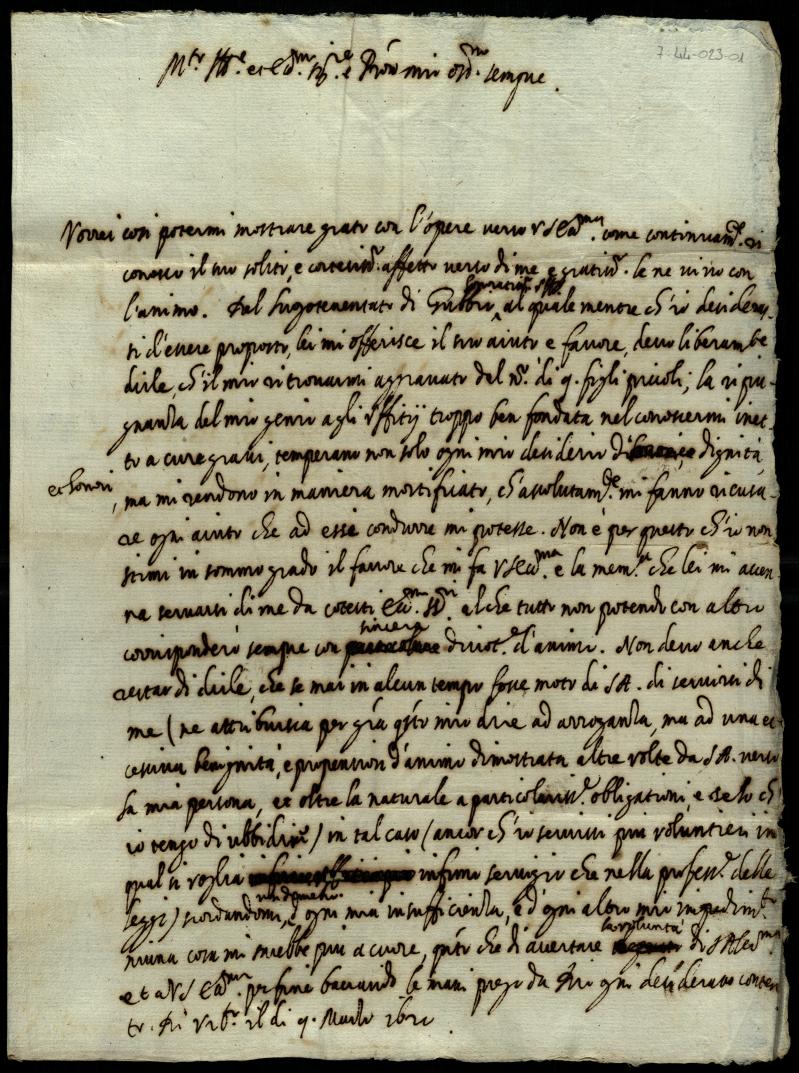 7-44-023-01
M.to Ill.re et Ecc.mo Sig.re e Pron mio oss.mo sempre.
Vorrei così potermi mostrare grato con l'opere verso V S Ecc.ma come continuam.te ri
conosco il suo solito, e cortesiss.o affetto verso di me, e gratiss.o le ne vivo con
l'animo. Dal luogotenentato di Gubbio, al quale mentre ch'io desideras-
si d'essere proposto, lei mi offerisce il suo aiuto e favore, devo liberam.te
dirle, ch'il mio ritrovarmi agravato del n.o di 9. figli piccioli; la ripu-
gnanza del mio genio agli uffitij troppo ben fondata nel conoscermi inet-
to a cure gravi, temperano non solo ogni mio desiderio di dignità
et honori, ma mi rendono in maniera mortificato, ch'assolutam.te mi fanno ricusa-
re ogni aiuto che ad esse condurre mi potesse. Non è per questo ch'io non
stimi in sommo grado il favore che mi fa V S Ecc.ma e la mem.a che lei mi accen-
na servarsi di me da cotesti Ecc.mi SS.ri al che tutto non potendo con altro
corrisponderò sempre con sincera divot.e d'animo. Non devo anche
restar di dirle, che se mai in alcun tempo fosse moto di S A. di servirsi di
me (ne attribuisca per gra q.sto mio dire ad arroganza, ma ad una ec-
cessiva benignità, e propension d'animo dimostrata altre volte da S A. verso
la mia persona, et oltre la naturale a particolariss.e obligationi, e zelo ch'
io tengo di ubbidire) in tal caso (ancor ch'io servissi più voluntieri in
qual si voglia infimo servigio che nella profess.e delle
leggi) scordandomi, d'ogni mia insufficienza, e d'ogni altro mio impedim.to
niuna cosa mi sarebbe più a cuore, q.to che di accertare la voluntà di S A Ser.ma
et a V S Ecc.ma per fine baciando le mani prego da Dio ogni desiderato conten-
to. Di Urb.o il di 9. Marzo 1621.